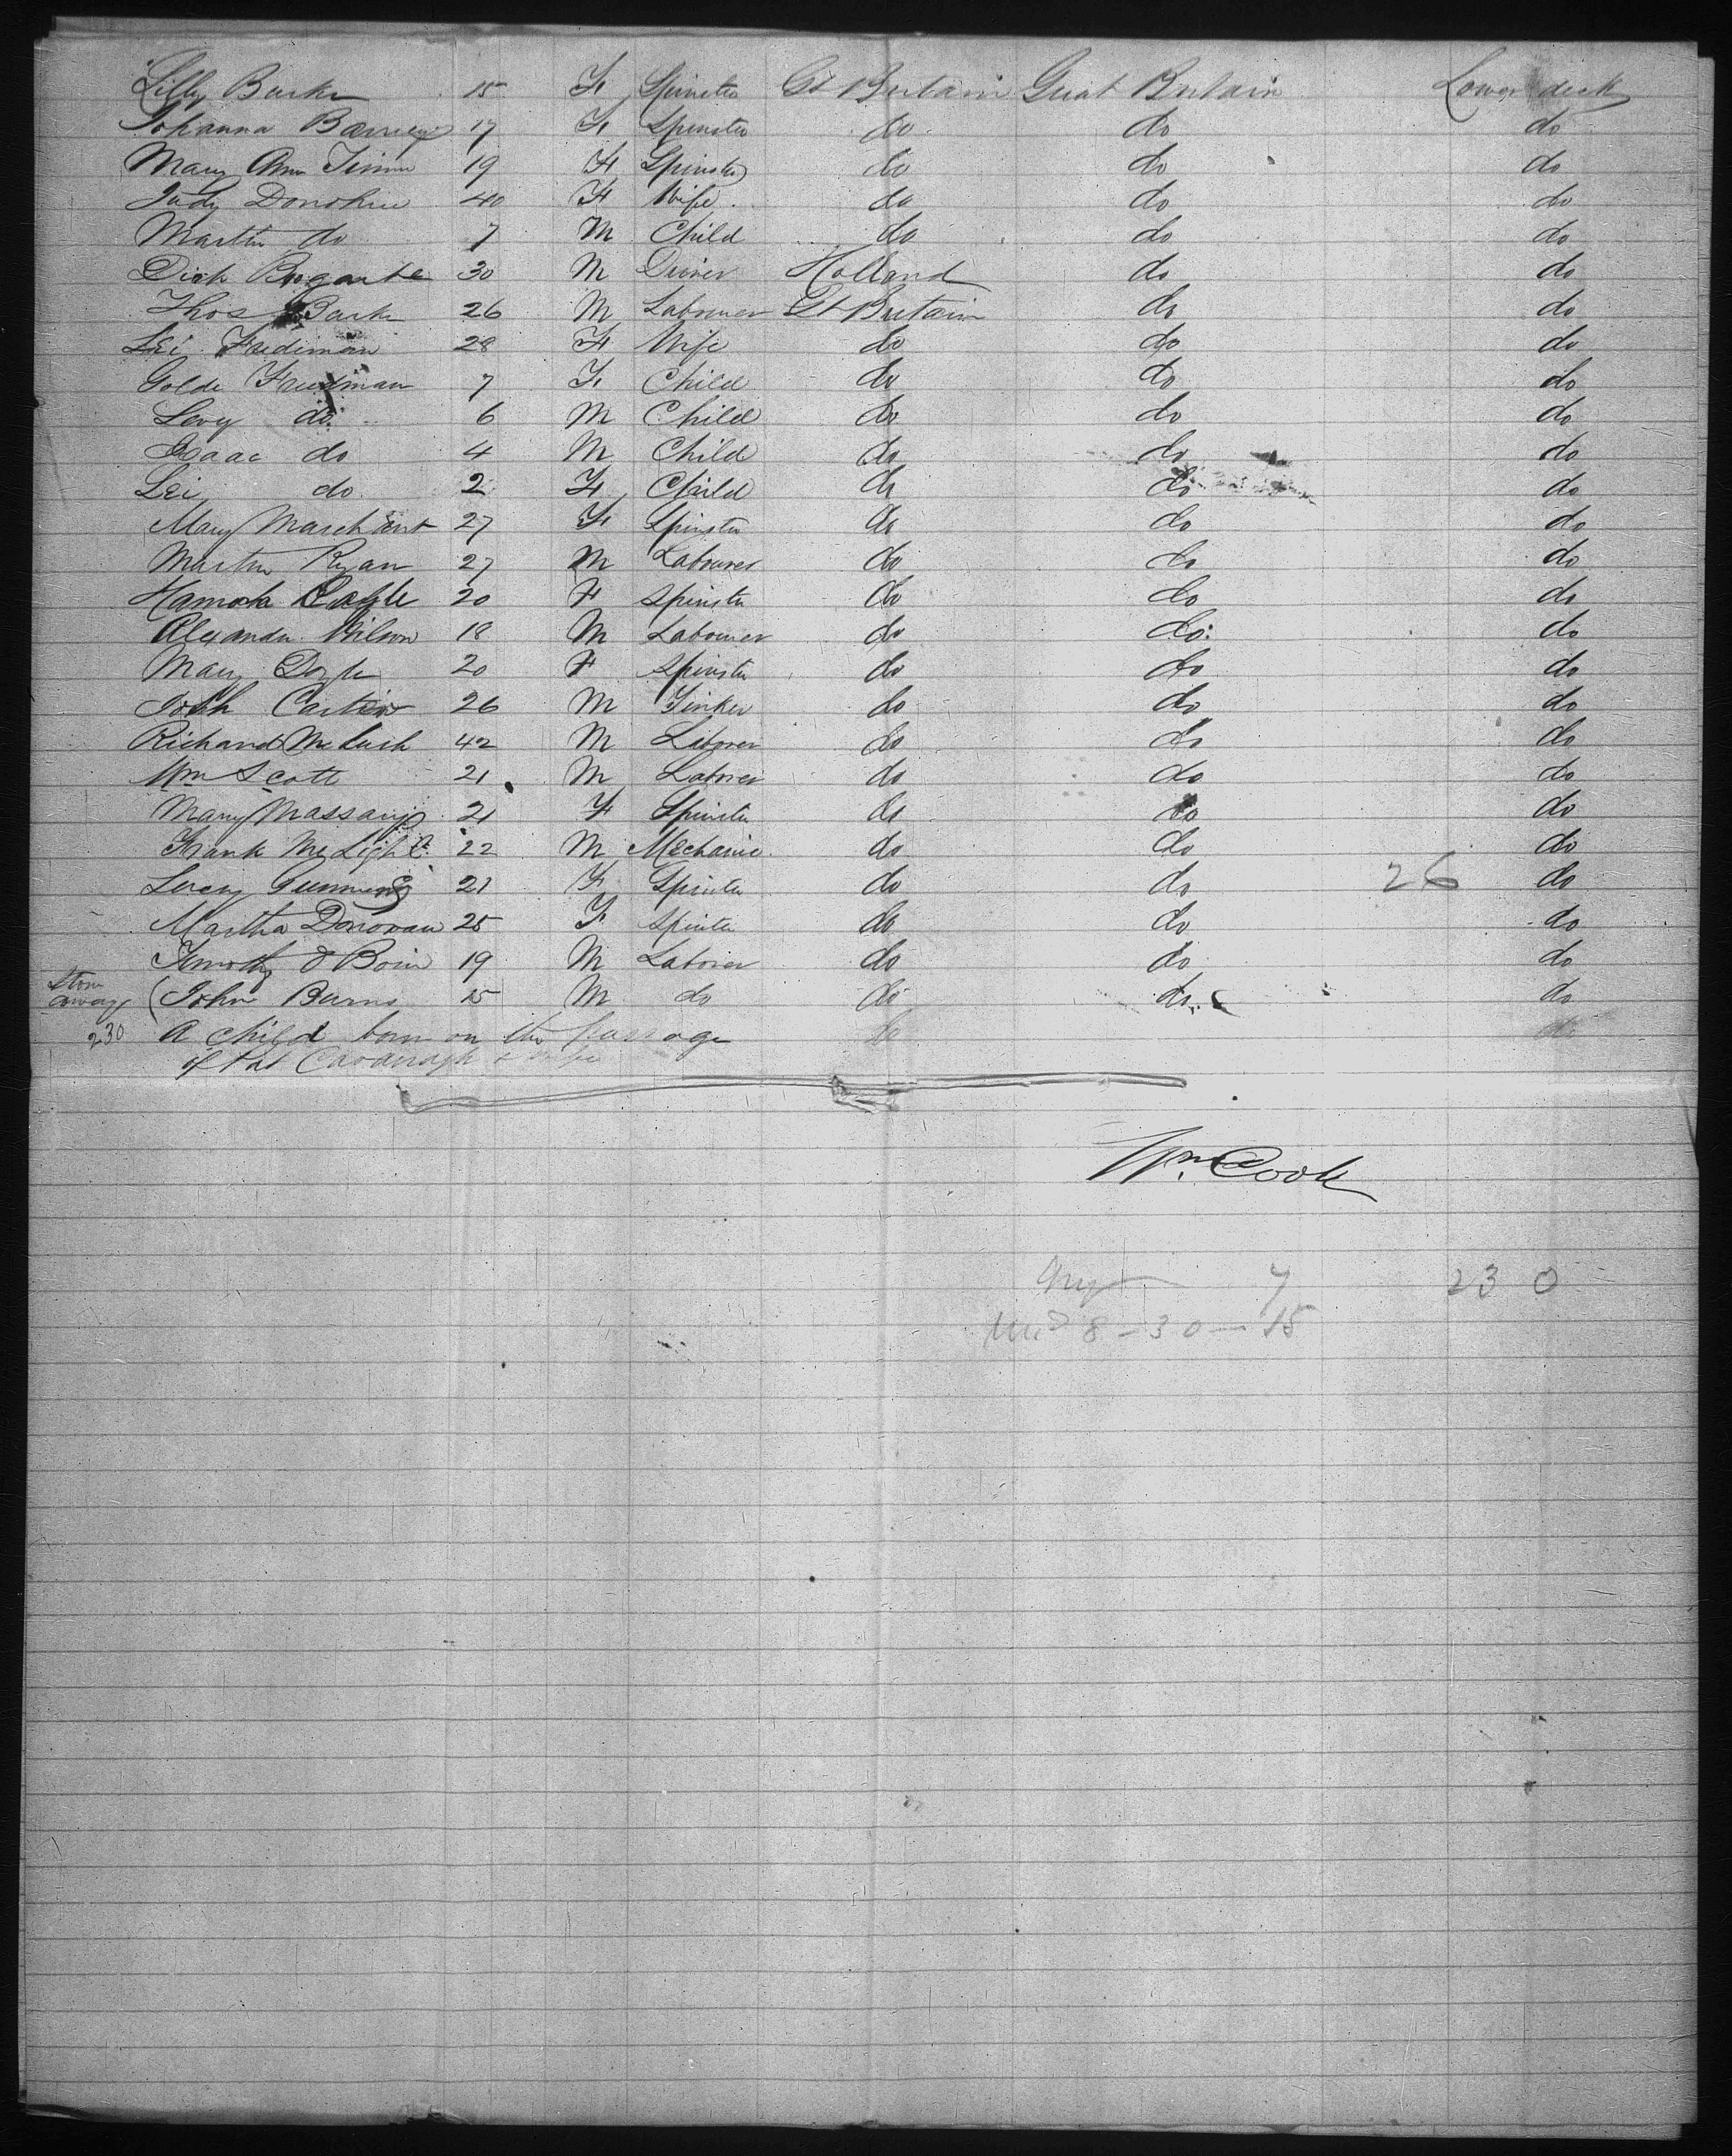 Lilly Burke 15 F Spinster Gt Britain Great Britain Lower deck
Johanna 17 F Spinster do do do
Mary Ann 19 F Spinster do do do
Judy Donohue 40 F Wife do do do
Martin do 7 M Child do do do
Dirk Bogarte 30 M Holland do do
Thos Burke 26 M Labourer Gt Britain do do
Lei Friedman 28 F Wife do do do
Golde Friedman 7 F Child do do do
Levy do 6 M Child do do do
Isaac do 4 M Child do do do
Lei do 2 F Child do do do
Mary Marchant 27 F Spinster do do do
Martin Ryan 27 M Labourer do do do
20 F Spinster do do do
Alexander Wilson 18 M Labourer do do do
Mary Doyle 20 F Spinster do do do
26 M Tinker do do do
Richard 42 M Laborer do do do
Wm Scott 21 M Laborer do do do
Mary 21 F Spinster do do do
Frank McLight 22 M Mechanic do do do
Lucy 21 F Spinster do do 26 do
Martha Donovan 25 F Spinster do do do
Timothy 19 M Laborer do do do
Stow away (John Burns 15 M do do do do
230 A child born on the passage do do
of Pat Cavanagh & wife
Wm. Cook
7 230
8-30-15